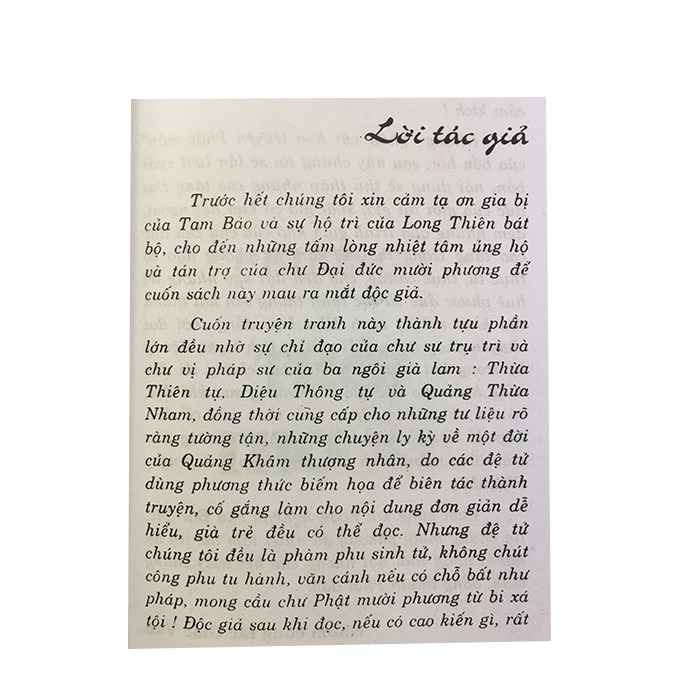 Lời tác giả
Trước hết chúng tôi xin cảm tạ ơn gia bị
của Tam Bảo và sự hộ trì của Long Thiên bát
bộ, cho đến những tấm lòng nhiệt tâm ủng hộ
và tán trợ của chư Đại đức mười phương để
cuốn sách này mau ra mắt độc giả.
Cuốn truyện tranh này thành tựu phần
lớn đều nhờ sự chỉ đạo của chư sư trụ trì và
chư vị pháp sư của ba ngôi già lam : Thừa
Thiên tự, Diệu Thông tự và Quảng Thừa
Nham, đồng thời cung cấp cho những tư liệu rõ
ràng tường tận, những chuyện ly kỳ về một đời
của Quảng Khâm thượng nhân, do các đệ tử
dùng phương thức biếm họa để biên tác thành
truyện, cố gắng làm cho nội dung đơn giản dễ
hiểu, già trẻ đều có thể đọc. Nhưng đệ tử
chúng tôi đều là phàm phu sinh tử, không chút
công phu tu hành, văn cánh nếu có chỗ bất như
pháp, mong cầu chư Phật mười phương từ bi xá
tội ! Độc giả sau khi đọc, nếu có cao kiến gì, rất